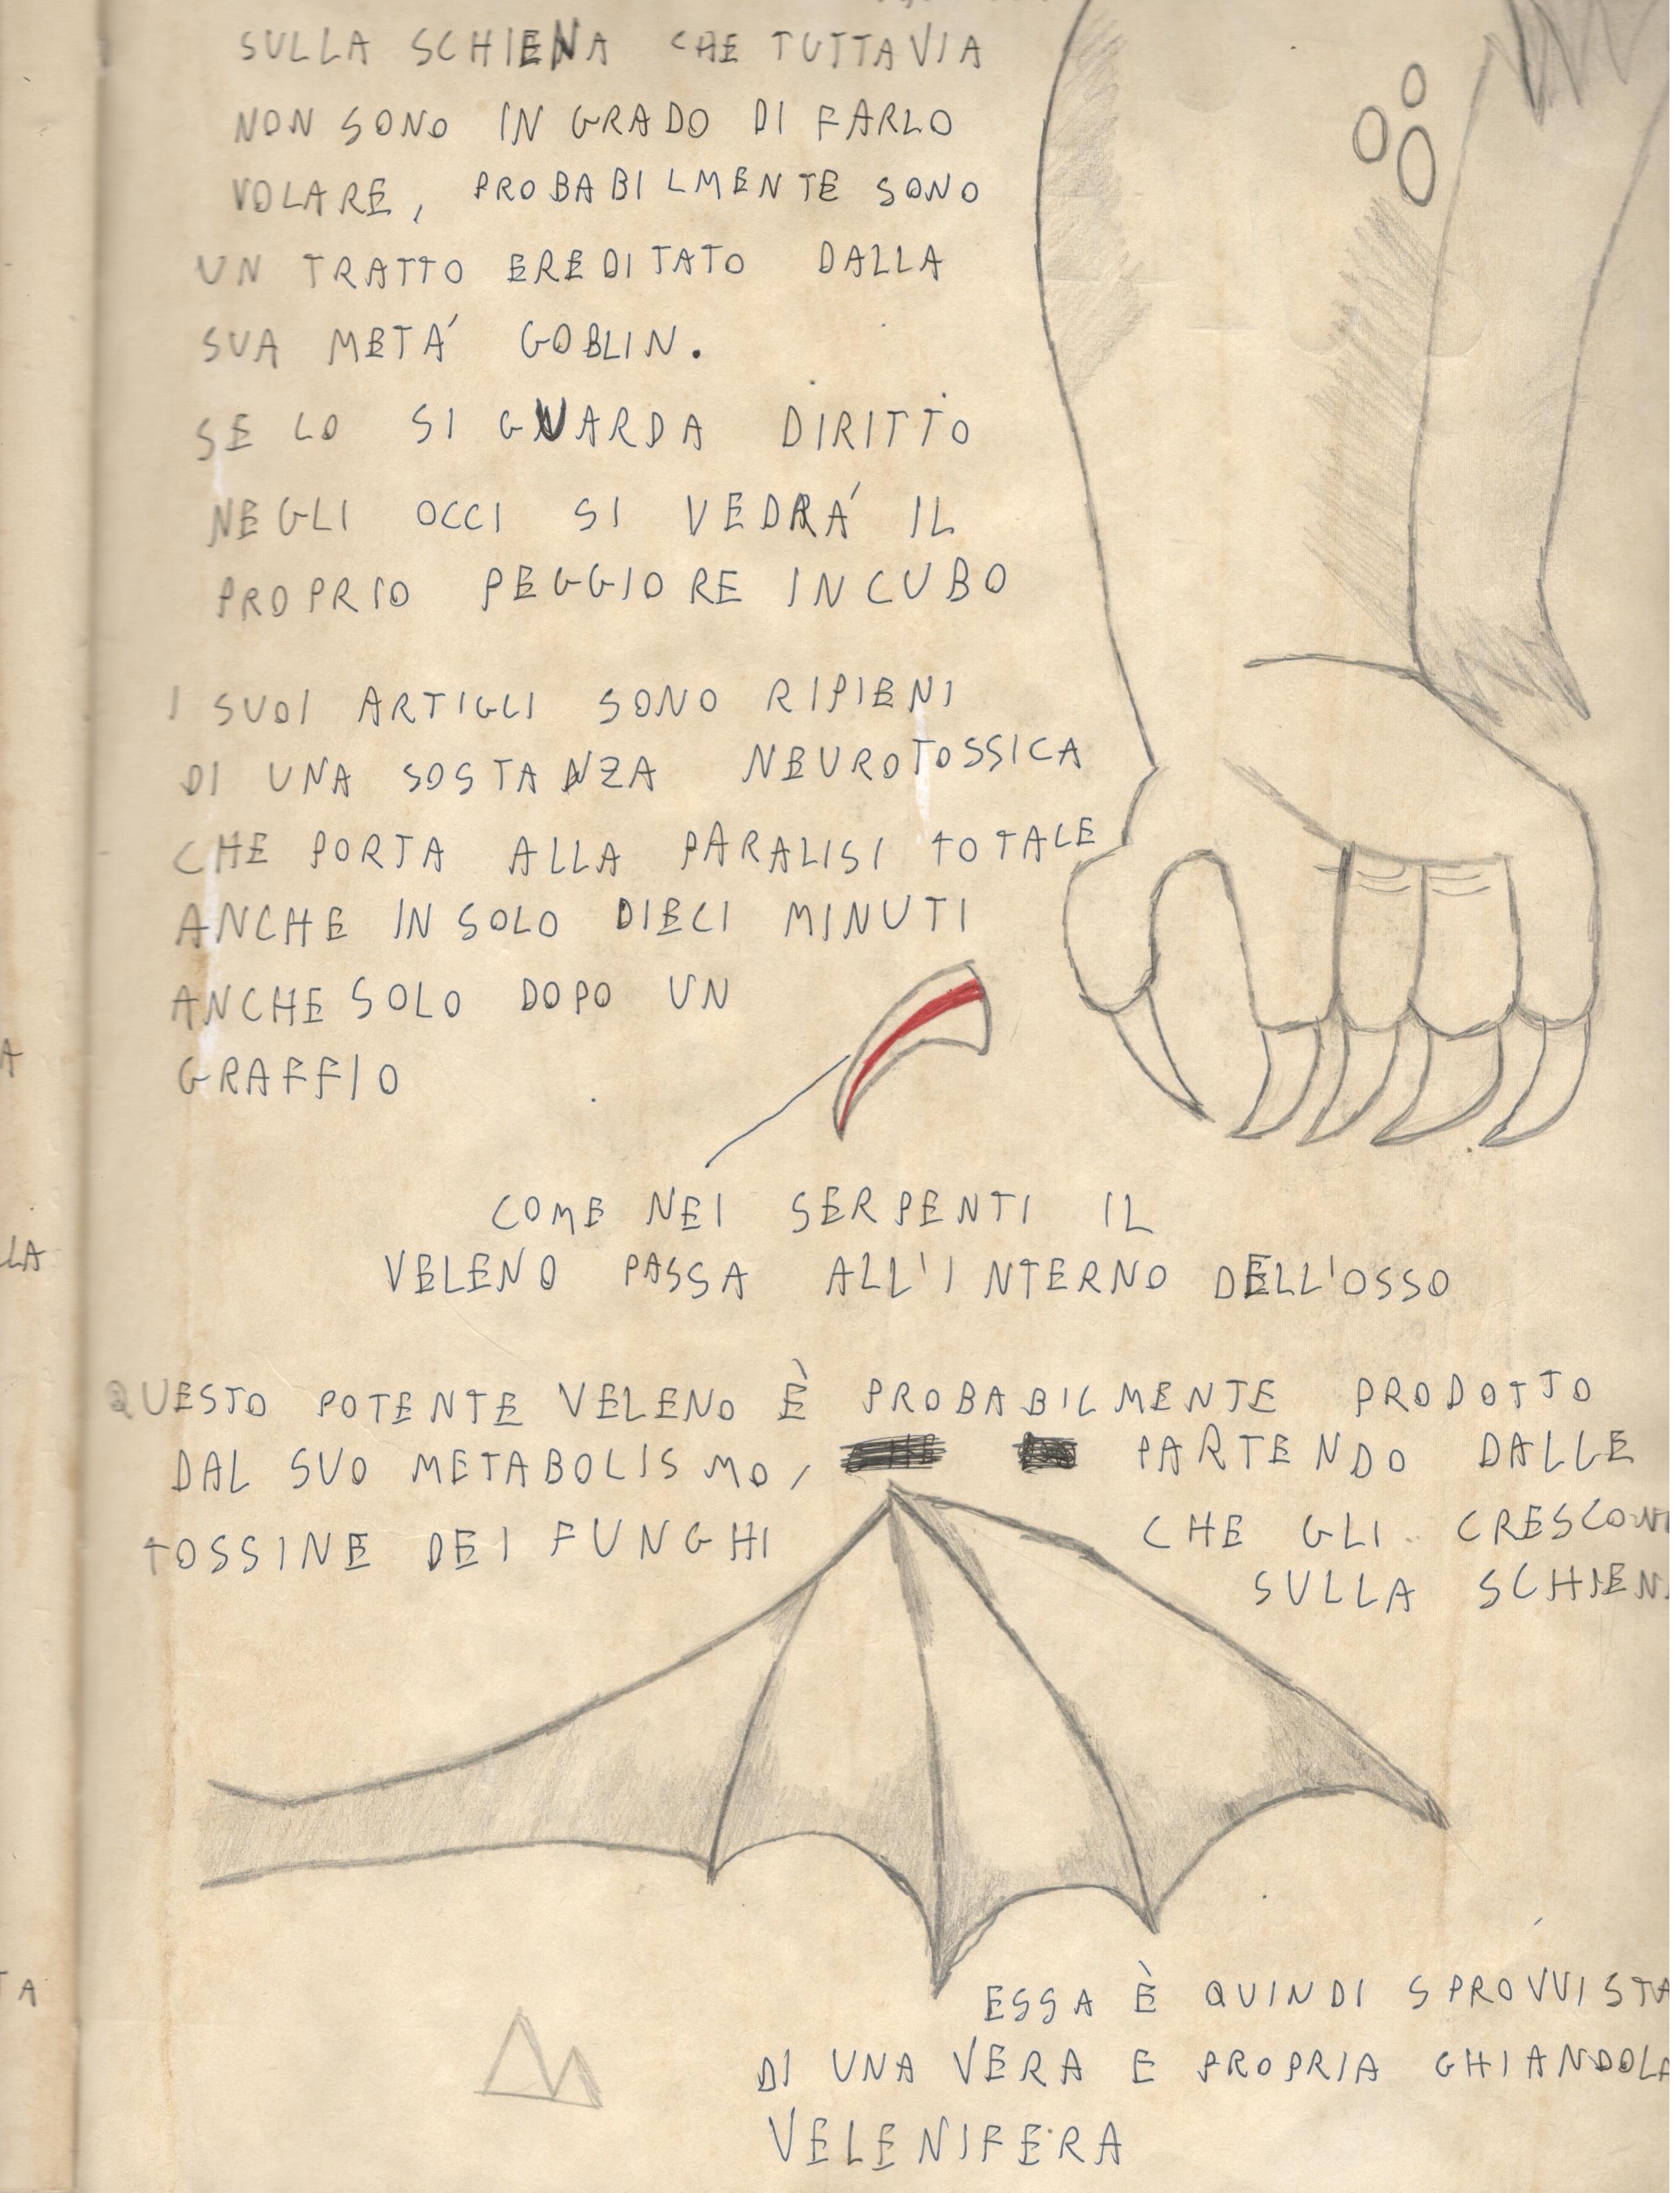 SULLA SCHIENA CHE TUTTAVIA
NON SONO IN GRADO DI FARLO
VOLARE, PROBABILMENTE SONO
UN TRATTO EREDITATO DALLA
SUA METÁ GOBLIN.
SE LO SI GUARDA DIRITTO
NEGLI OCCI SI VEDRÁ IL
PROPRIO PEGGIORE INCUBO
I SUOI ARTIGLI SONO RIPIENI
DI UNA SOSTANZA NEUROTOSSICA
CHE PORTA ALLA PARALISI TOTALE
ANCHE IN SOLO DIECI MINUTI
ANCHE SOLO DOPO UN
GRAFFIO
COME NEI SERPENTI IL
VELENO PASSA ALL'INTERNO DELL'OSSO
QUESTO POTENTE VELENO È PROBABILMENTE PRODOTTO
DAL SUO METABOLISMO, PARTENDO DALLE
TOSSINE DEI FUNGHI CHE GLI CRESCON
SULLA SCHIEN
ESSA È QUINDI SPROVVISTA
DI UNA VERA E PROPRIA GHIANDOLA
VELENIFERA
A
LLA
TA